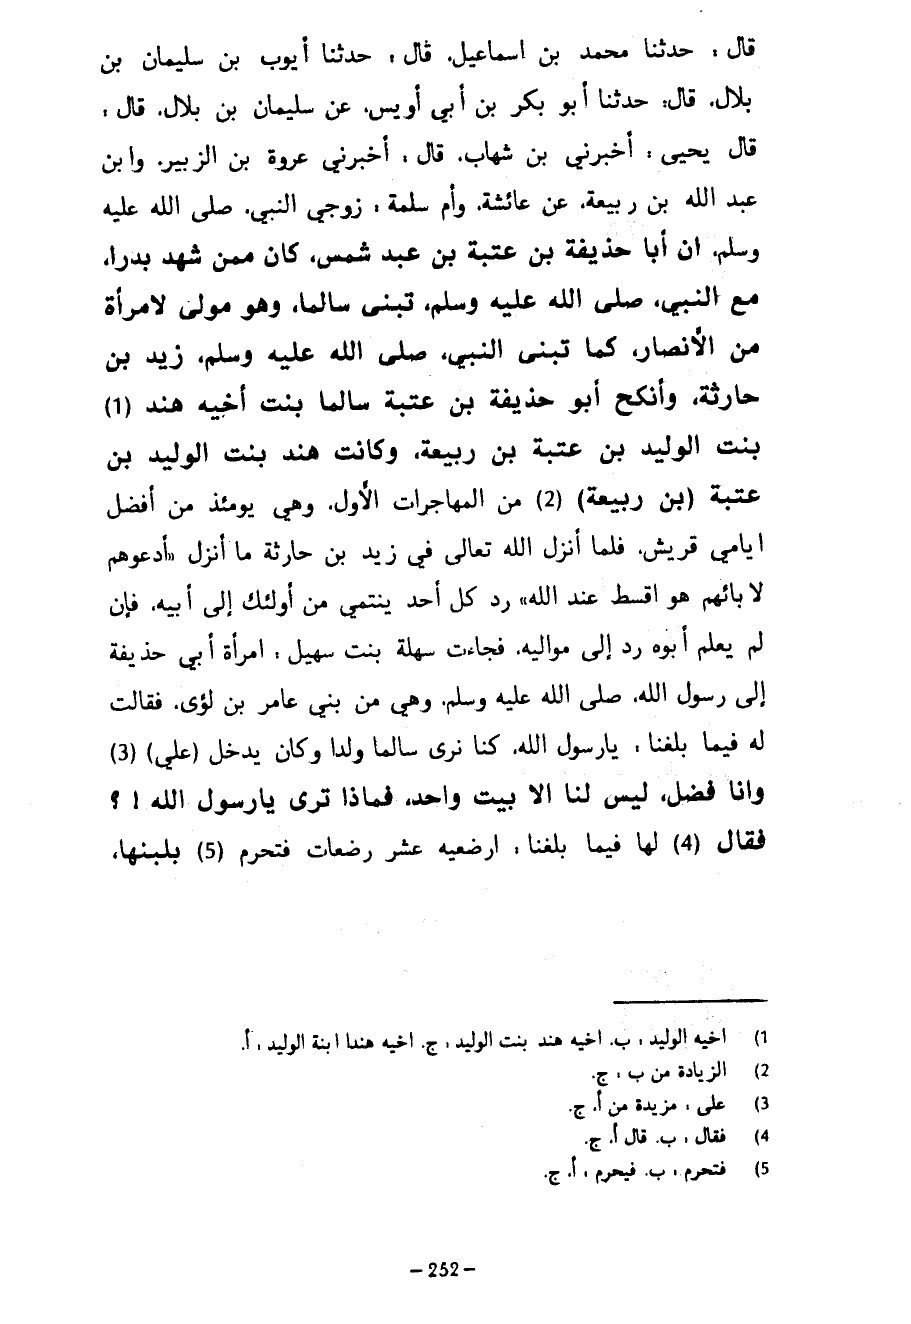 قال : حدثنا محمد بن اسماعيل، قال : حدثنا أيوب بن سليمان بن
بلال، قال: حدثنا أبو بكر بن أبي أويس، عن سليمان بن بلال، قال :
قال يحيى : أخبرني بن شهاب، قال : أخبرني عروة بن الزبير، وابن
عبد الله بن ربيعة، عن عائشة، وأم سلمة : زوجي النبي، صلى الله عليه
وسلم، ان أبا حذيفة بن عتبة بن عبد شمس، كان ممن شهد بدرا،
مع النبي، صلى الله عليه وسلم، تبنى سالما، وهو مولى لامرأة
من الأنصار، كما تبنى النبي، صلى الله عليه وسلم، زيد بن
حارثة، وأنكح أبو حذيفة بن عتبة سالما بنت أخيه هند (1)
بنت الوليد بن عتبة بن ربيعة، وكانت هند بنت الوليد بن
عتبة (بن ربيعة) (2) من المهاجرات الأول، وهي يومئذ من أفضل
ايامي قريش، فلما أنزل الله تعالى في زيد بن حارثة ما أنزل «أدعوهم
لابائهم هو اقسط عند الله» رد كل أحد ينتمي من أولئك إلى أبيه، فإن
لم يعلم أبوه رد إلى مواليه، فجاءت سهلة بنت سهيل : امرأة أبي حذيفة
إلى رسول الله، صلى الله عليه وسلم، وهي من بني عامر بن لؤى، فقالت
له فيما بلغنا : يارسول الله، كنا نرى سالما ولدا وكان يدخل (علي) (3)
وانا فضل، ليس لنا الا بيت واحد، فماذا ترى يارسول الله ! ؟
فقال (4) لها فيما بلغنا : ارضعيه عشر رضعات فتحرم (5) بلبنها،
1) اخيه الوليد : ب. اخيه هند بنت الوليد : ج. اخيه هندا ابنة الوليد : أ.
2) الزيادة من ب : ج.
3) على : مزيدة من أ. ج.
4) فقال : ب. قال أ. ج.
5) فتحرم : ب. فيحرم : أ. ج.
– 252 –